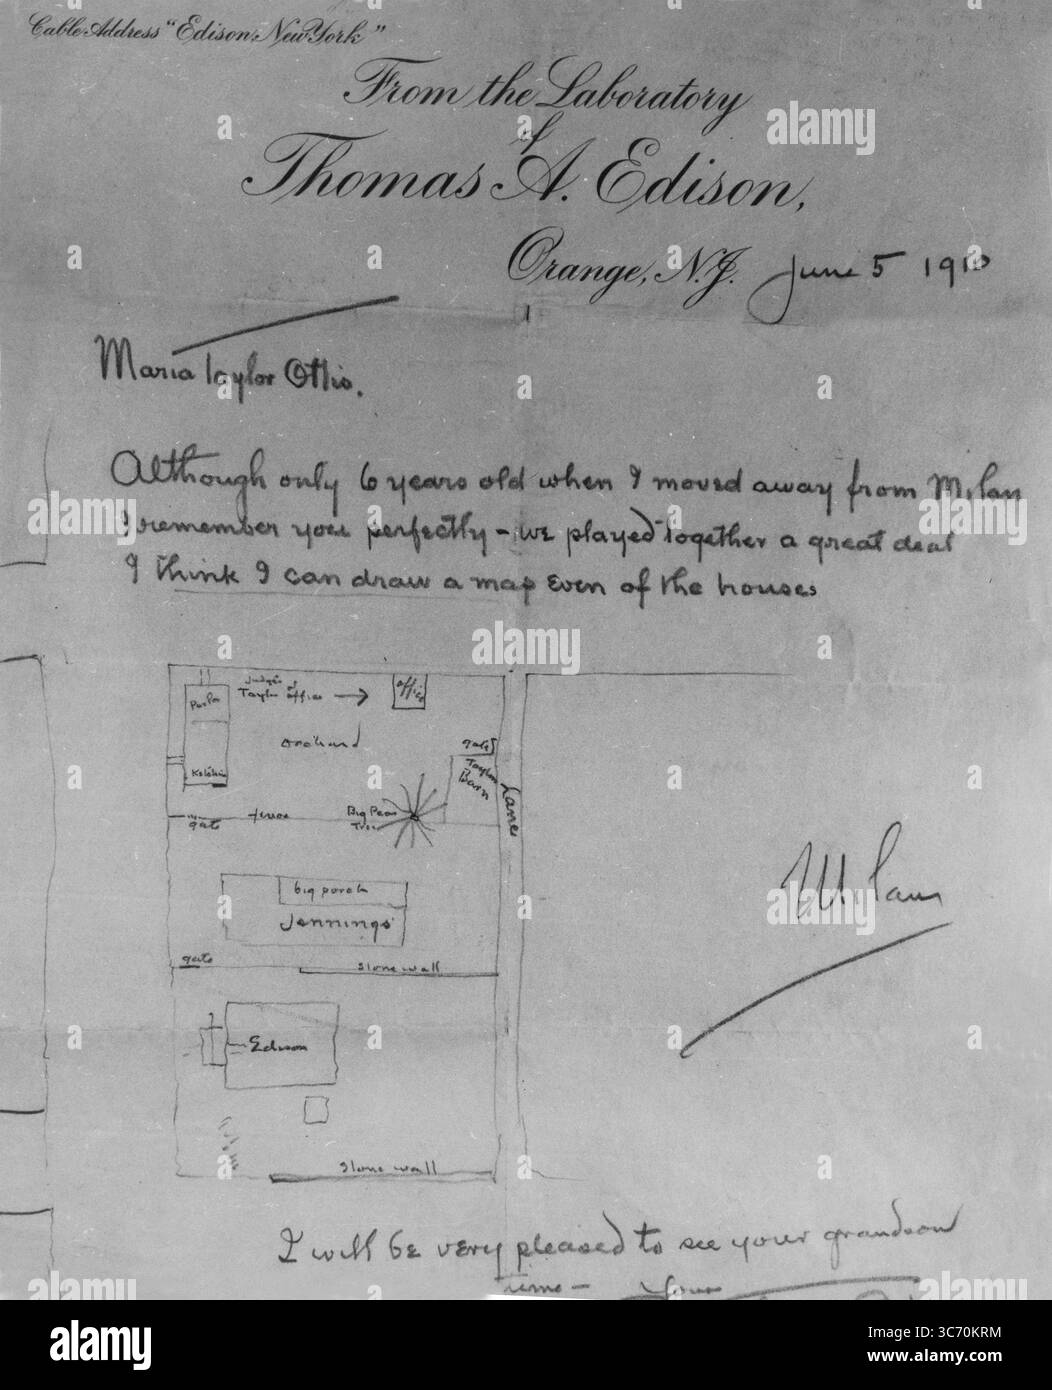 Cable Address "Edison, New York"
From the Laboratory
of
Thomas A. Edison,
Orange, N.J. June 5 1910
Maria Taylor Ottis.
Although only 6 years old when I moved away from Milan
I remember you perfectly - we played together a great deal
I think I can draw a map even of the houses
Judge
Taylor office
office
Parlor
orchard
gate
Taylor
Barn
Kitchen
Lane
gate
fence
Big Pear
Tree
Milan
big porch
Jennings
gate
stone wall
Edison
stone wall
I will be very pleased to see your grandson
time - Yours
alamy
a
alamy
Image ID: 3C70KRM
www.alamy.com